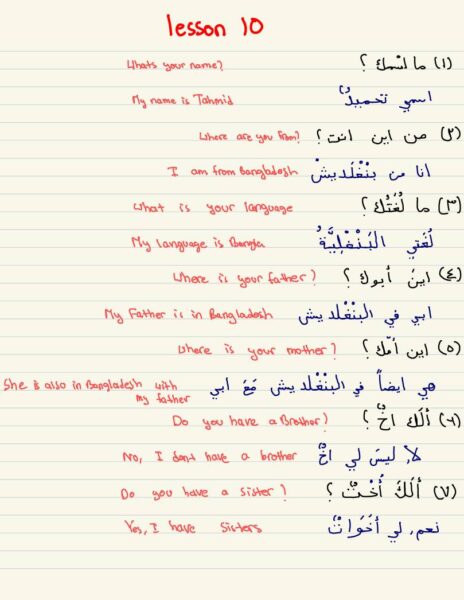 lesson 10
Whats your name? (١) ما اسْمك ؟
My name is Tahmid اسمي تحميدٌ
Where are you from? (٢) من اين انت ؟
I am from Bangladesh انا من بنْغْلَديشْ
What is your language (٣) ما لُغَتُك ؟
My language is Bangla لُغَتي البَنْغْلِيَّةُ
Where is your father? (٤) اينَ أبوك ؟
My Father is in Bangladesh ابي في البنْغْلديش
Where is your mother? (٥) اين أمّك ؟
She is also in Bangladesh with my father هي ايضاً في البنْغْلديش مَعَ ابي
Do you have a Brother? (٦) ألَكَ اخٌ ؟
No, I dont have a brother لا، ليسَ لي اخٌ
Do you have a sister? (٧) ألَكَ أُخْتٌ ؟
Yes, I have Sisters نعم، لي أخَوَاتٌ